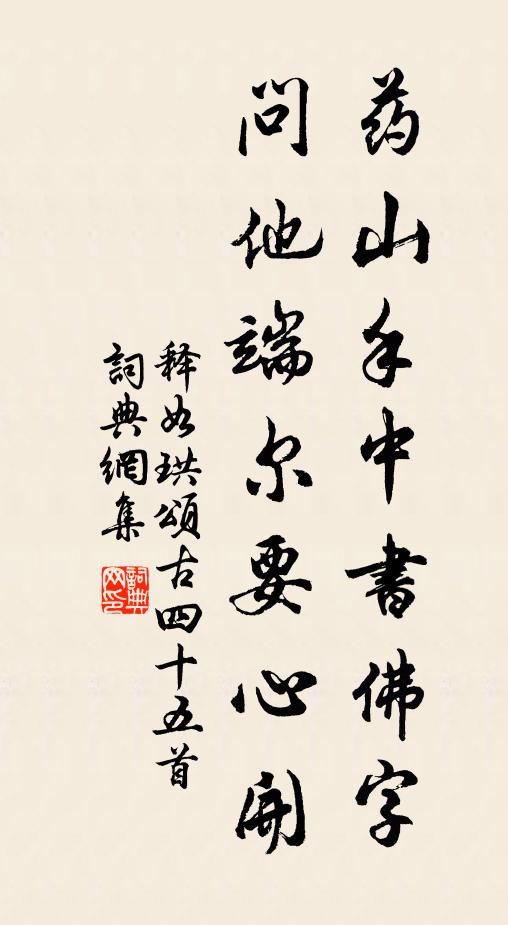 药山手中書佛字
問他端尔要心開
释如珙頌古四十五首
詞典網集
詞典网印